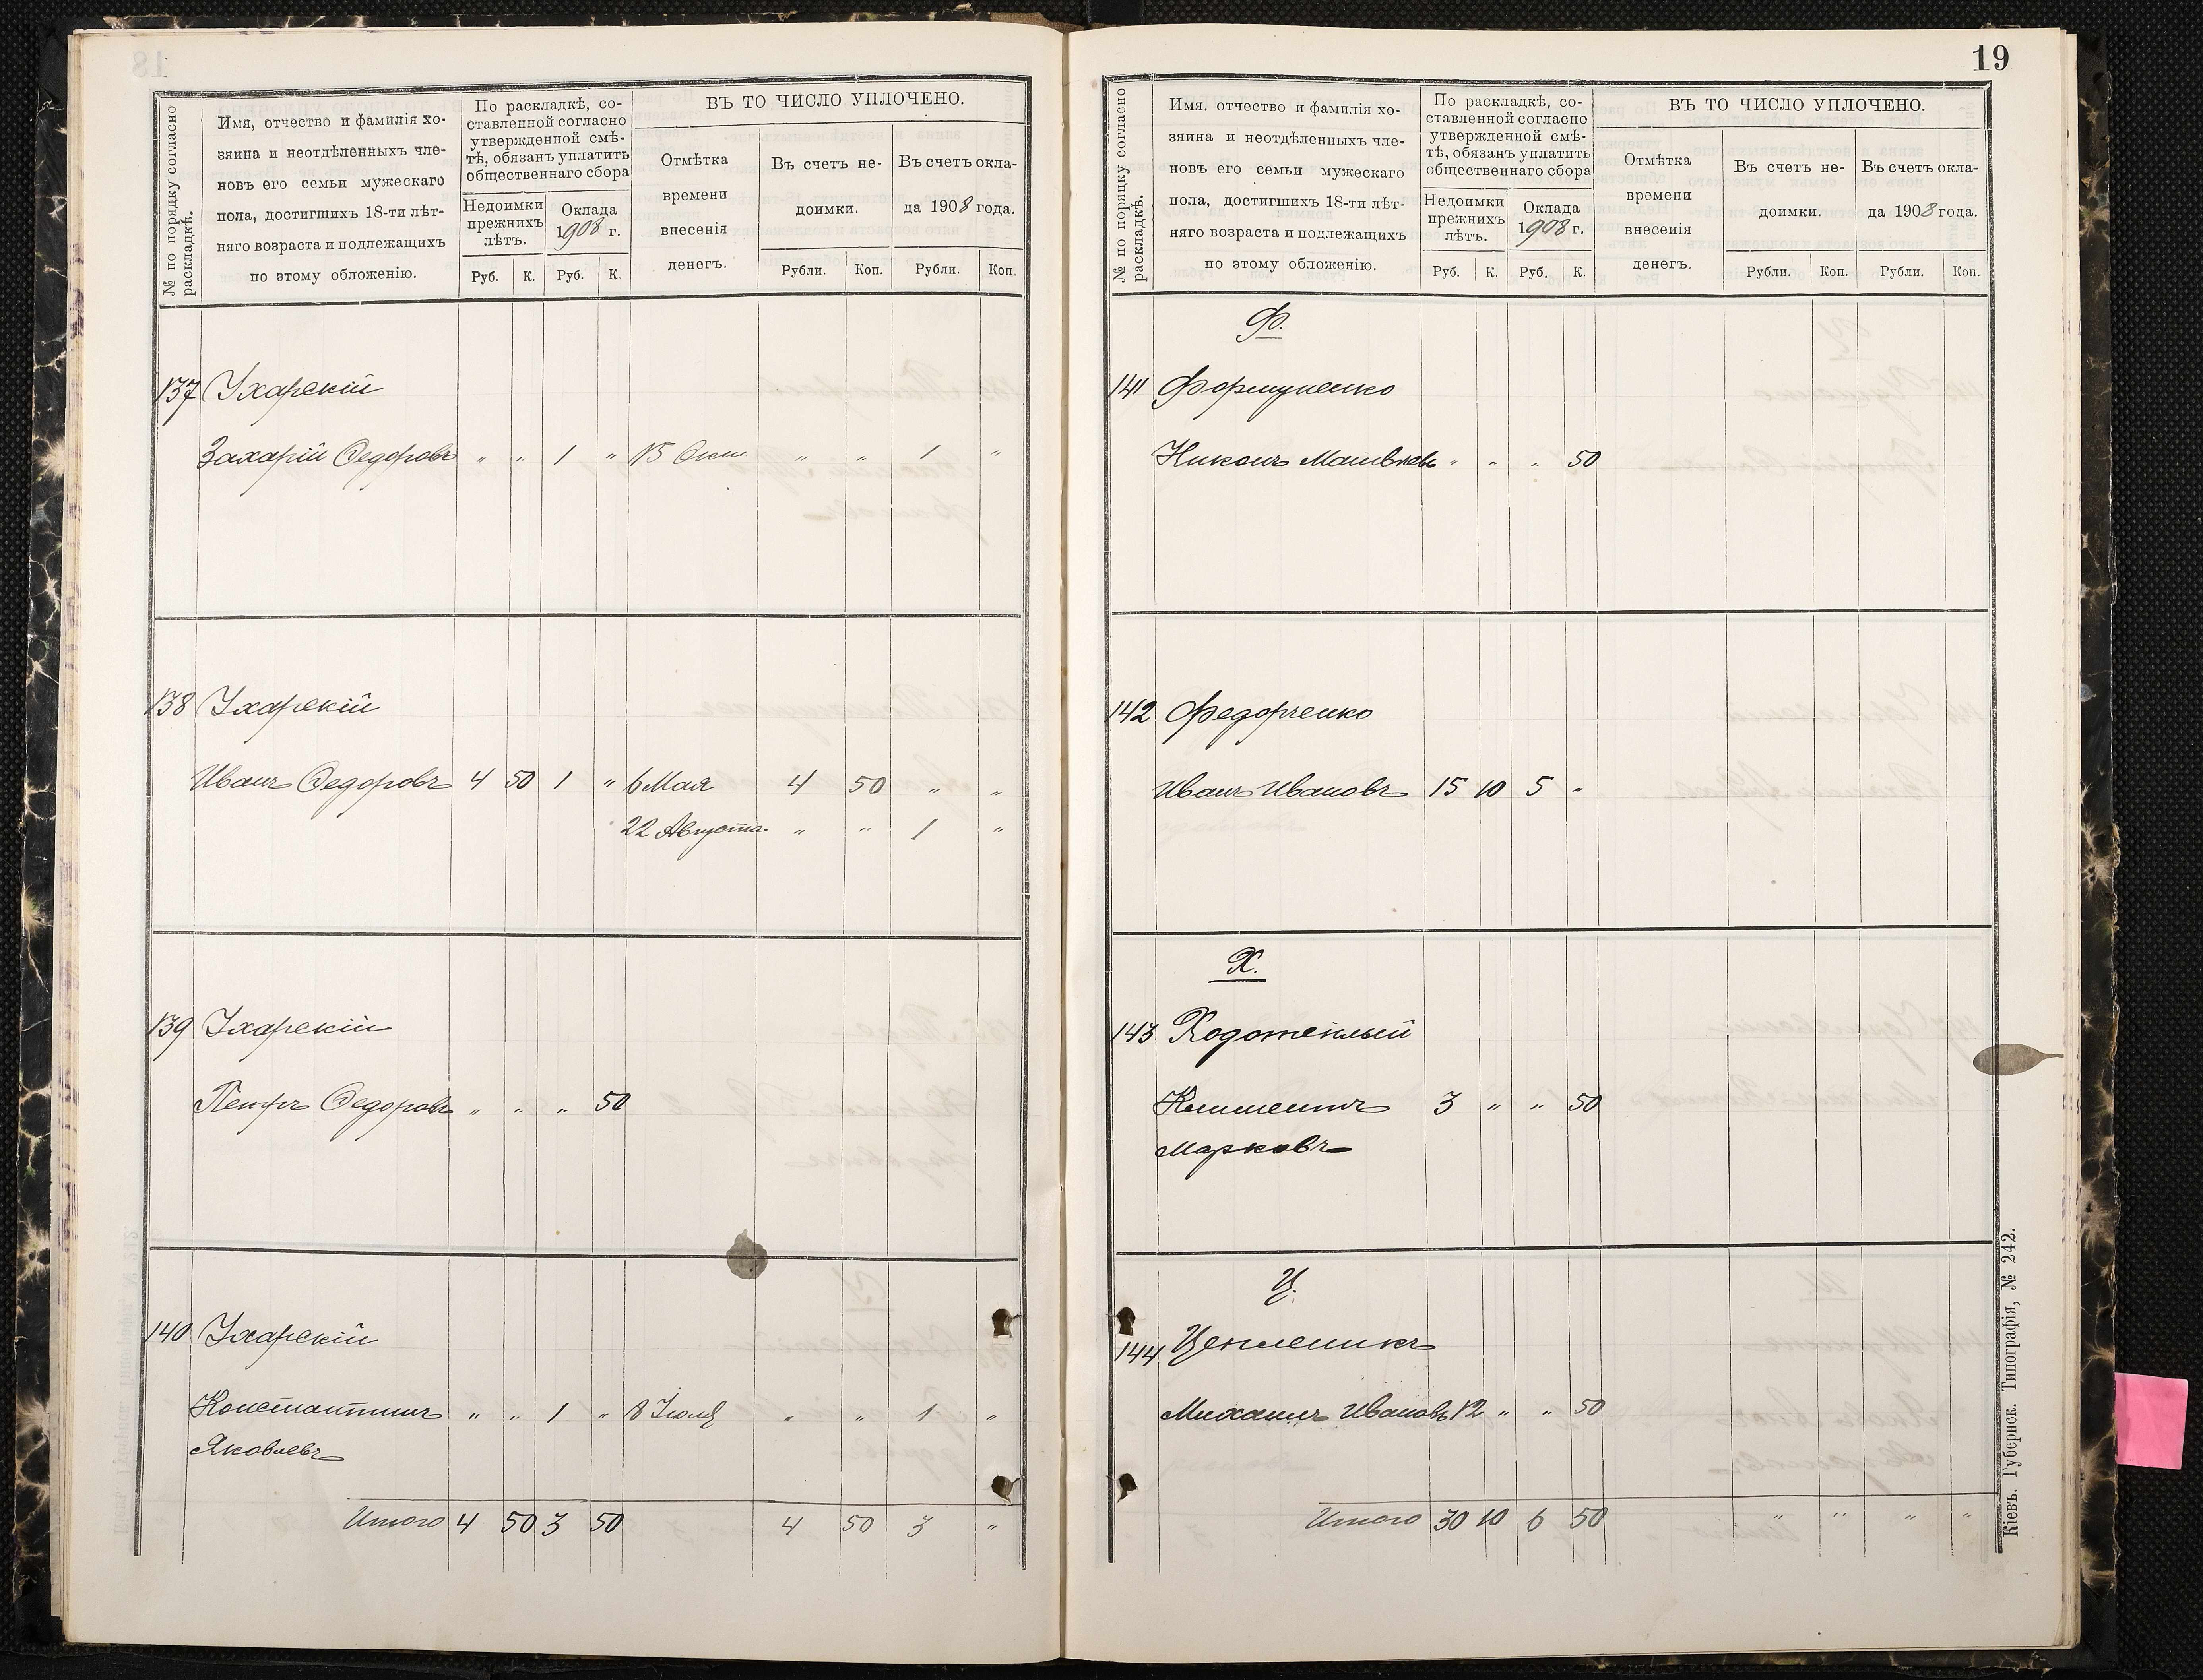 № по порядку согласно раскладкѣ.
Имя, отчество и фамилія хо-
зяина и неотдѣленныхъ чле-
новъ его семьи мужескаго
пола, достигшихъ 18-ти лѣт-
няго возраста и подлежащихъ
по этому обложенію.
По раскладкѣ, со-
ставленной согласно
утвержденной смѣ-
тѣ, обязанъ уплатить
общественнаго сбора
Недоимки
прежнихъ
лѣтъ.
Оклада
1908 г.
Руб. К. Руб. К.
ВЪ ТО ЧИСЛО УПЛОЧЕНО.
Отмѣтка
времени
внесенія
денегъ.
Въ счетъ не-
доимки.
Въ счетъ окла-
да 1908 года.
Рубли. Коп. Рубли. Коп.
137 Ухарскій
Захарій Федоровъ " " 1 " 15 Окт " " 1 "
138 Ухарскій
Иванъ Федоровъ 4 50 1 " 6 Мая 4 50 " "
22 Августа " " 1 "
139 Ухарскій
Петръ Федоровъ " " " 50
140 Ухарскій
Константинъ " " 1 " 8 Іюля " " 1 "
Яковлевъ
Итого 4 50 3 50 4 50 3 "
19
№ по порядку согласно раскладкѣ.
Имя, отчество и фамилія хо-
зяина и неотдѣленныхъ чле-
новъ его семьи мужескаго
пола, достигшихъ 18-ти лѣт-
няго возраста и подлежащихъ
по этому обложенію.
По раскладкѣ, со-
ставленной согласно
утвержденной смѣ-
тѣ, обязанъ уплатить
общественнаго сбора
Недоимки
прежнихъ
лѣтъ.
Оклада
1908 г.
Руб. К. Руб. К.
ВЪ ТО ЧИСЛО УПЛОЧЕНО.
Отмѣтка
времени
внесенія
денегъ.
Въ счетъ не-
доимки.
Въ счетъ окла-
да 1908 года.
Рубли. Коп. Рубли. Коп.
Ф.
141
Никонъ Матвѣевъ " " " 50
142 Федорченко
Иванъ Ивановъ 15 10 5 "
Х.
143
Климентъ 3 " " 50
Марковъ
Ц.
144
Михаилъ Ивановъ 12 " " 50
Итого 30 10 6 50 " " " "
Кіевъ. Губернск. Типографія, № 242.